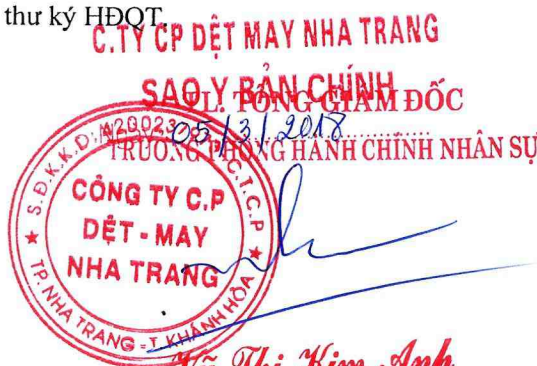 thư ký HĐQT.
C.TY CP DỆT MAY NHA TRANG
SAO Y BẢN CHÍNH
TL. TỔNG GIÁM ĐỐC
05/3/2018
TRƯỞNG PHÒNG HÀNH CHÍNH NHÂN SỰ
S.Đ.K.K.D:
C.T.C.P
CÔNG TY C.P
DỆT - MAY
NHA TRANG
TP. NHA TRANG - T. KHÁNH HÒA
Thị Kim Anh